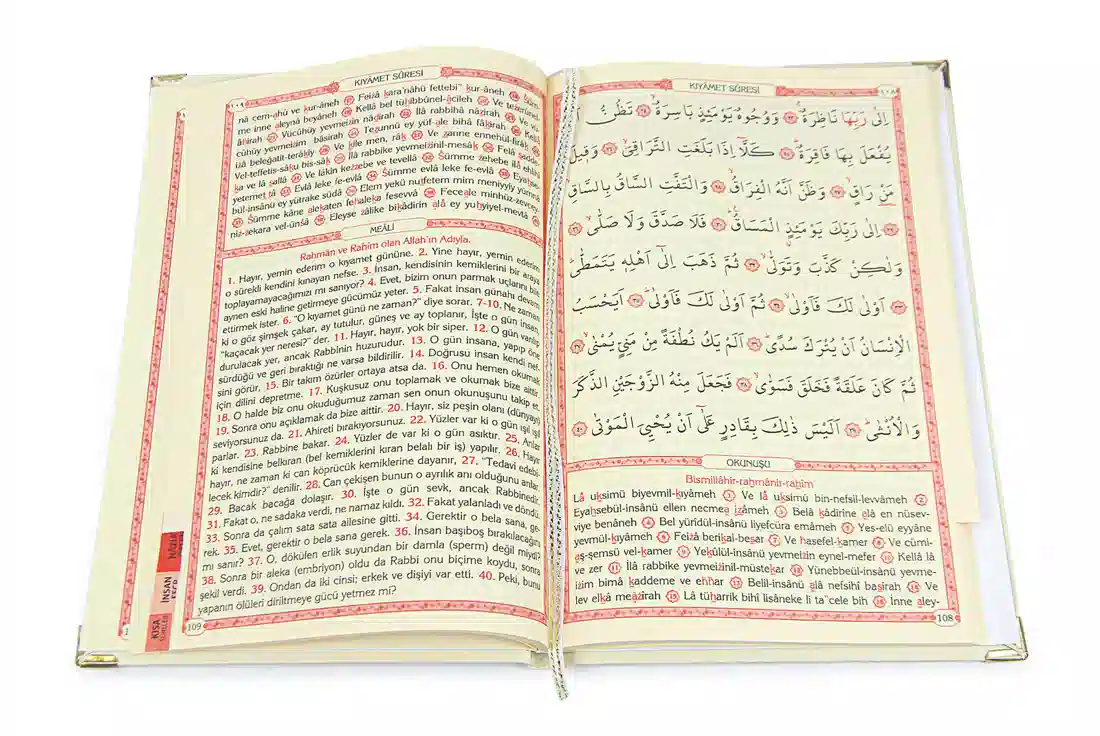 KIYÂMET SÛRESİ
١٠٨
اِلٰى رَبِّهَا نَاظِرَةٌۚ ﴿٢٣﴾ وَوُجُوهٌ يَوْمَئِذٍ بَاسِرَةٌۙ ﴿٢٤﴾ تَظُنُّ اَنْ
يُفْعَلَ بِهَا فَاقِرَةٌۜ ﴿٢٥﴾ كَلَّٓا اِذَا بَلَغَتِ التَّرَاقِيَۙ ﴿٢٦﴾ وَقِيلَ
مَنْ رَاقٍۙ ﴿٢٧﴾ وَظَنَّ اَنَّهُ الْفِرَاقُۙ ﴿٢٨﴾ وَالْتَفَّتِ السَّاقُ بِالسَّاقِۙ
﴿٢٩﴾ اِلٰى رَبِّكَ يَوْمَئِذٍۨ الْمَسَاقُۜ ﴿٣٠﴾ فَلَا صَدَّقَ وَلَا صَلّٰىۙ ﴿٣١﴾
وَلٰكِنْ كَذَّبَ وَتَوَلّٰىۙ ﴿٣٢﴾ ثُمَّ ذَهَبَ اِلٰٓى اَهْلِه۪ يَتَمَطّٰىۜ
﴿٣٣﴾ اَوْلٰى لَكَ فَاَوْلٰىۙ ﴿٣٤﴾ ثُمَّ اَوْلٰى لَكَ فَاَوْلٰىۜ ﴿٣٥﴾ اَيَحْسَبُ
الْاِنْسَانُ اَنْ يُتْرَكَ سُدًىۜ ﴿٣٦﴾ اَلَمْ يَكُ نُطْفَةً مِنْ مَنِيٍّ يُمْنٰىۙ ﴿٣٧﴾
ثُمَّ كَانَ عَلَقَةً فَخَلَقَ فَسَوّٰىۙ ﴿٣٨﴾ فَجَعَلَ مِنْهُ الزَّوْجَيْنِ الذَّكَرَ
وَالْاُنْثٰىۜ ﴿٣٩﴾ اَلَيْسَ ذٰلِكَ بِقَادِرٍ عَلٰٓى اَنْ يُحْيِيَ الْمَوْتٰى ﴿٤٠﴾
OKUNUŞU
Bismillâhir-rahmânir-rahîm
Lâ uksimü biyevmil-kıyâmeh 1 Ve lâ uksimü bin-nefsil-levvâmeh 2
Eyahsebül-insânü ellen necmea izâmeh 3 Belâ kâdirîne alâ en nüsev-
viye benâneh 4 Bel yürîdül-insânü liyefcüra emâmeh 5 Yes-elü eyyâne
yevmül-kıyâmeh 6 Feizâ berikal-besar 7 Ve hasefel-kamer 8 Ve cümi-
aş-şemsü vel-kamer 9 Yekûlül-insânü yevmeizin eynel-mefer 10 Kellâ lâ
ve zer 11 İlâ rabbike yevmeizinil-müstekar 12 Yünebbeül-insânü yevme-
izim bimâ kaddeme ve ehhar 13 Belil-insânü alâ nefsihî basîrah 14 Ve
lev elkâ meâzîrah 15 Lâ tüharrik bihî lisâneke li ta'cele bih 16 İnne aley-
108
KIYÂMET SÛRESİ
١٠٩
nâ cem-ahü ve kur-âneh 17 Feizâ kara'nâhü fettebi' kur-âneh 18 Süm-
me inne aleynâ beyâneh 19 Kellâ bel tühibbûnel-âcileh 20 Ve tezerûnel-
âhirah 21 Vücûhüy yevmeizin nâdirah 22 İlâ rabbihâ nâzirah 23 Ve vü-
cûhüy yevmeizim bâsirah 24 Tezunnü ey yüf-ale bihâ fâkirah 25 Kellâ
izâ beleğatit-terâkıy 26 Ve kîle men, râk 27 Ve zanne ennehül-firâk 28
Vel-teffetis-sâku bis-sâk 29 İlâ rabbike yevmeizinil-mesâk 30 Felâ sadde-
ka ve lâ sallâ 31 Ve lâkin kezzebe ve tevellâ 32 Sümme zehebe ilâ ehlihî
yetemettâ 33 Evlâ leke fe-evlâ 34 Sümme evlâ leke fe-evlâ 35 Eyahse-
bül-insânü ey yütrake südâ 36 Elem yekü nutfetem mim meniyyiy yümnâ
37 Sümme kâne alekaten fehaleka fesevvâ 38 Feceale minhüz-zevcey-
niz-zekara vel-ünsâ 39 Eleyse zâlike bikâdirin alâ ey yuhyiyel-mevtâ 40
MEÂLİ
Rahmân ve Rahîm olan Allah'ın Adıyla.
1. Hayır, yemin ederim o kıyamet gününe. 2. Yine hayır, yemin ederim
o sürekli kendini kınayan nefse. 3. İnsan, kendisinin kemiklerini bir araya
toplayamayacağımızı mı sanıyor? 4. Evet, bizim onun parmak uçlarını bile
aynen eski haline getirmeye gücümüz yeter. 5. Fakat insan günahı devam
ettirmek ister. 6. "O kıyamet günü ne zaman?" diye sorar. 7-10. Ne zaman
ki o göz şimşek çakar, ay tutulur, güneş ve ay toplanır, İşte o gün insan,
"kaçacak yer neresi?" der. 11. Hayır, hayır, yok bir siper. 12. O gün varılıp
durulacak yer, ancak Rabbinin huzurudur. 13. O gün insana, yapıp öne
sürdüğü ve geri bıraktığı ne varsa bildirilir. 14. Doğrusu insan kendi nef-
sini görür, 15. Bir takım özürler ortaya atsa da. 16. Onu hemen okumak
için dilini depretme. 17. Kuşkusuz onu toplamak ve okumak bize aittir.
18. O halde biz onu okuduğumuz zaman sen onun okunuşunu takip et.
19. Sonra onu açıklamak da bize aittir. 20. Hayır, siz peşin olanı (dünyayı)
seviyorsunuz da. 21. Ahireti bırakıyorsunuz. 22. Yüzler var ki o gün ışıl ışıl
parlar. 23. Rabbine bakar. 24. Yüzler de var ki o gün asıktır. 25. Anlar
ki kendisine belkıran (bel kemiklerini kıran belalı bir iş) yapılır. 26. Hayır
hayır, ne zaman ki can köprücük kemiklerine dayanır, 27. "Tedavi edebi-
lecek kimdir?" denilir. 28. Can çekişen bunun o ayrılık anı olduğunu anlar.
29. Bacak bacağa dolaşır. 30. İşte o gün sevk, ancak Rabbinedir.
31. Fakat o, ne sadaka verdi, ne namaz kıldı. 32. Fakat yalanladı ve döndü.
33. Sonra da çalım sata sata ailesine gitti. 34. Gerektir o bela sana, ge-
rek. 35. Evet, gerektir o bela sana gerek. 36. İnsan başıboş bırakılacağını
mı sanır? 37. O, dökülen erlik suyundan bir damla (sperm) değil miydi?
38. Sonra bir aleka (embriyon) oldu da Rabbi onu biçime koydu, sonra
şekil verdi. 39. Ondan da iki cinsi; erkek ve dişiyi var etti. 40. Peki, bunu
yapanın ölüleri diriltmeye gücü yetmez mi?
109
İNSAN
KISA